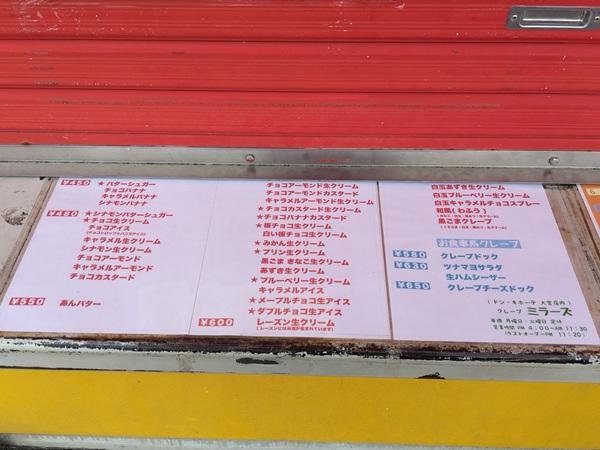 ¥450 ★バターシュガー
チョコバナナ
キャラメルバナナ
シナモンバナナ
¥480 ★シナモンバターシュガー
★チョコ生クリーム
チョコアイス
キャラメル生クリーム
シナモン生クリーム
チョコアーモンド
キャラメルアーモンド
チョコカスタード
¥550 あんバター
チョコアーモンド生クリーム
チョコアーモンドカスタード
★チョコカスタード生クリーム
★チョコバナナカスタード
★板チョコ生クリーム
白い板チョコ生クリーム
★みかん生クリーム
★プリン生クリーム
黒ごま きなこ生クリーム
あずき生クリーム
★ブルーベリー生クリーム
キャラメルアイス
★メープルチョコ生アイス
★ダブルチョコ生アイス
¥600 レーズン生クリーム
(レーズンにはお酒が含まれています)
白玉あずき生クリーム
白玉ブルーベリー生クリーム
白玉キャラメルチョコスプレー
和風(わふう)
黒ごまクレープ
お食事系クレープ
¥580 クレープドック
¥630 ツナマヨサラダ
生ハムシーザー
¥650 クレープチーズドック
(ドン・キホーテ 大宮店内)
クレープ ミラーズ
毎週 月曜日・火曜日 定休
営業時間 PM 4:00~AM 11:30
(ラストオーダーPM 11:20)